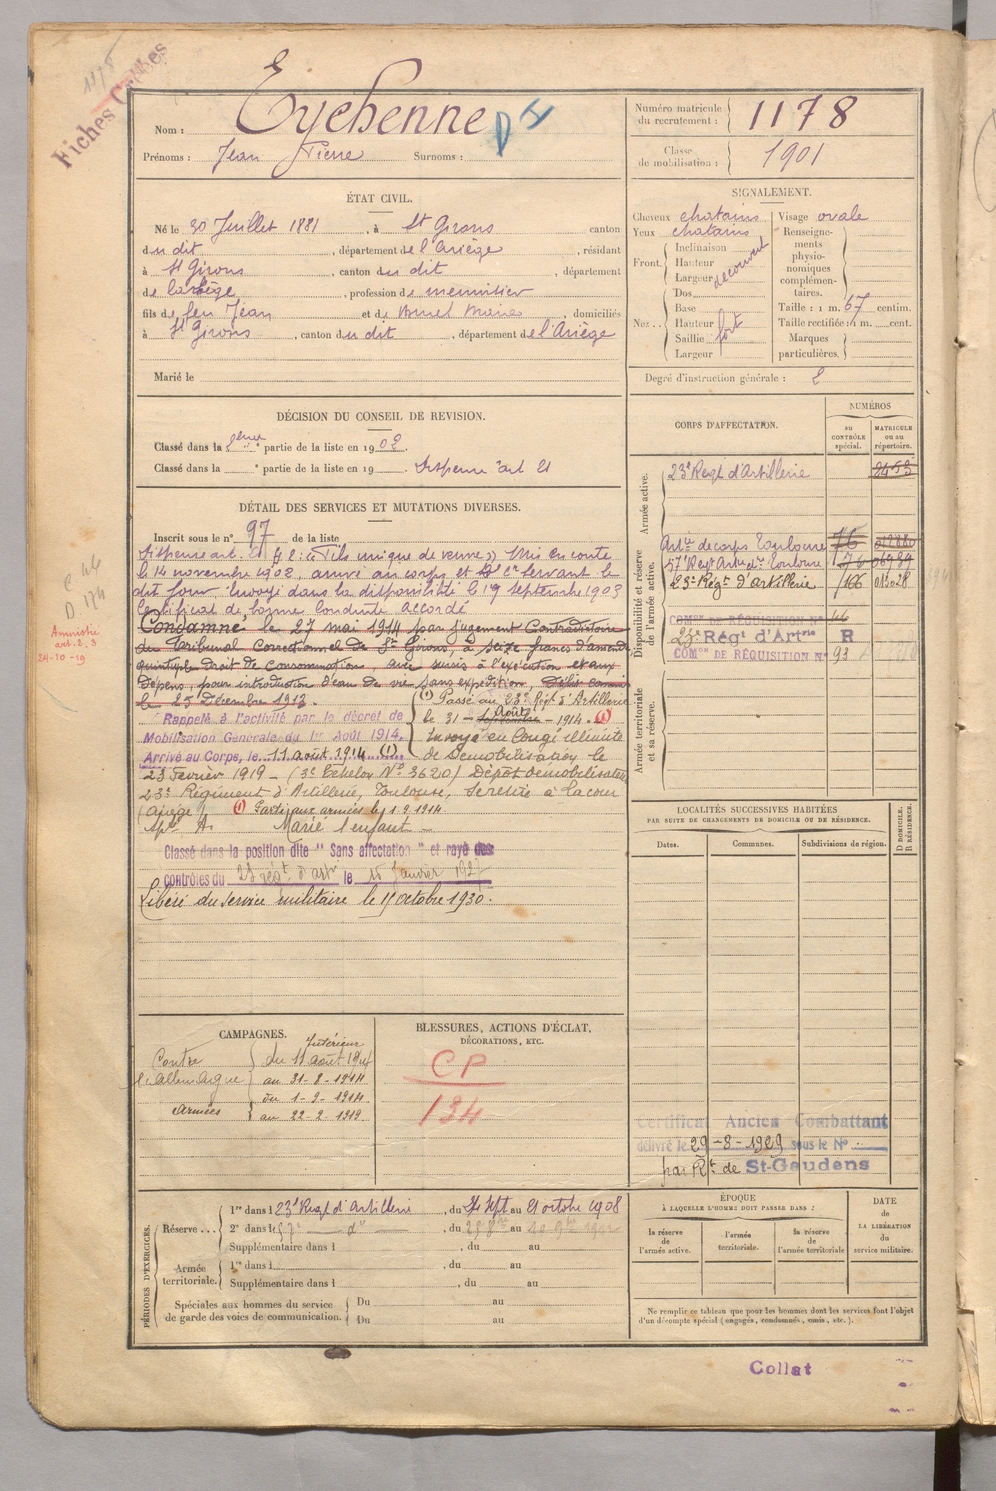 1178
Fiches
Nom : Eychenne
Prénoms : Jean Pierre Surnoms :
Numéro matricule du recrutement : 1178
Classe de mobilisation : 1901
ÉTAT CIVIL.
Né le 30 Juillet 1881, à St Girons canton
du dit, département de l'Ariège, résidant
à St Girons, canton du dit, département
de l'Ariège, profession de menuisier
fils de feu Jean et de Marie, domiciliés
à St Girons, canton du dit, département de l'Ariège
Marié le
SIGNALEMENT.
Cheveux chatains
Yeux chatains
Front. Inclinaison
Hauteur
Largeur
découvert
Nez.. Dos
Base
Hauteur
Saillie fort
Largeur
Visage ovale
Renseignements physionomiques complémentaires.
Taille : 1 m. 67 centim.
Taille rectifiée : 1 m. cent.
Marques particulières.
Degré d'instruction générale : 2
DÉCISION DU CONSEIL DE REVISION.
Classé dans la 2ème partie de la liste en 1902.
Classé dans la ° partie de la liste en 19 . Dispensé art 21
DÉTAIL DES SERVICES ET MUTATIONS DIVERSES.
Inscrit sous le n° 97 de la liste
Dispensé art. 21 "Fils unique de veuve" Mis en route
le 14 novembre 1902, arrivé au corps et 2e Cr Servant le
dit jour. Envoyé dans la disponibilité le 19 Septembre 1903
Certificat de bonne Conduite Accordé
Condamné le 27 mai 1914 par jugement Contradictoire
du Tribunal Correctionnel de St Girons, à seize francs d'amende
quintuple droit de consommation, avec sursis à l'exécution et aux
dépens, pour introduction d'eau de vie sans expédition, Délit commis
le 25 Décembre 1913.
Rappelé à l'activité par le décret de
Mobilisation Générale du 1er Août 1914.
Arrivé au Corps, le 11 août 1914 (1)
(1) Passé au 23e Régt d'Artillerie
le 31 Août 1914. (1)
Envoyé en Congé illimité
de Démobilisation le
23 Février 1919 - (3e Echelon No 3620) Dépôt démobilisateur
23e Régiment d'Artillerie, Toulouse, se retire à Lacour
(Ariège) (1) Parti aux armées le 1.9.1914
Marié 1 enfant
Classé dans la position dite "Sans affectation" et rayé des
contrôles du 23 régt d'artie le 15 Janvier
Libéré du service militaire le octobre 1930.
Amnistie
art. 2, 3
24-10-19
CORPS D'AFFECTATION.
NUMÉROS
AU CONTRÔLE spécial.
MATRICULE ou au répertoire.
Armée active.
23e Regt d'Artillerie
Disponibilité et réserve de l'armée active.
Artie de corps Toulouse 76
57e Régt Artie do Toulouse 76
23e Régt d'Artillerie 166
COMon DE RÉQUISITION No 46
23e Régt d'Artrie R
COMon DE RÉQUISITION No 93
Armée territoriale et sa réserve.
LOCALITÉS SUCCESSIVES HABITÉES
PAR SUITE DE CHANGEMENTS DE DOMICILE OU DE RÉSIDENCE.
Dates. Communes. Subdivisions de région.
D DOMICILE.
R RÉSIDENCE.
CAMPAGNES.
Contre l'allemagne
Intérieur
du 11 août 1914
au 31-8-1914
Armées
du 1-9-1914
au 22-2-1919
BLESSURES, ACTIONS D'ÉCLAT,
DÉCORATIONS, ETC.
CP
134
Certificat Ancien Combattant
délivré le 29-8-1929 sous le No
par Rt de St-Gaudens
PÉRIODES D'EXERCICES.
Réserve... 1re dans l 23e Regt d'Artillerie, du Sept au 21 octobre 1908
2e dans le 57e do, du au
Supplémentaire dans l , du au
Armée territoriale. 1re dans l , du au
Supplémentaire dans l , du au
Spéciales aux hommes du service de garde des voies de communication. Du au
Du au
ÉPOQUE
À LAQUELLE L'HOMME DOIT PASSER DANS :
la réserve de l'armée active.
l'armée territoriale.
la réserve de l'armée territoriale
DATE de LA LIBÉRATION du service militaire.
Ne remplir ce tableau que pour les hommes dont les services font l'objet
d'un décompte spécial (engagés, condamnés, omis, etc.).
Collat